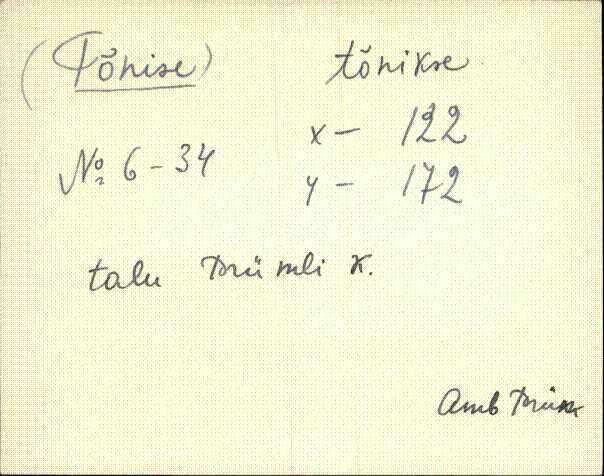 (Tõnise) tõnikse
x – 122
№ 6-34
y – 172
talu Prümli k.
Amb